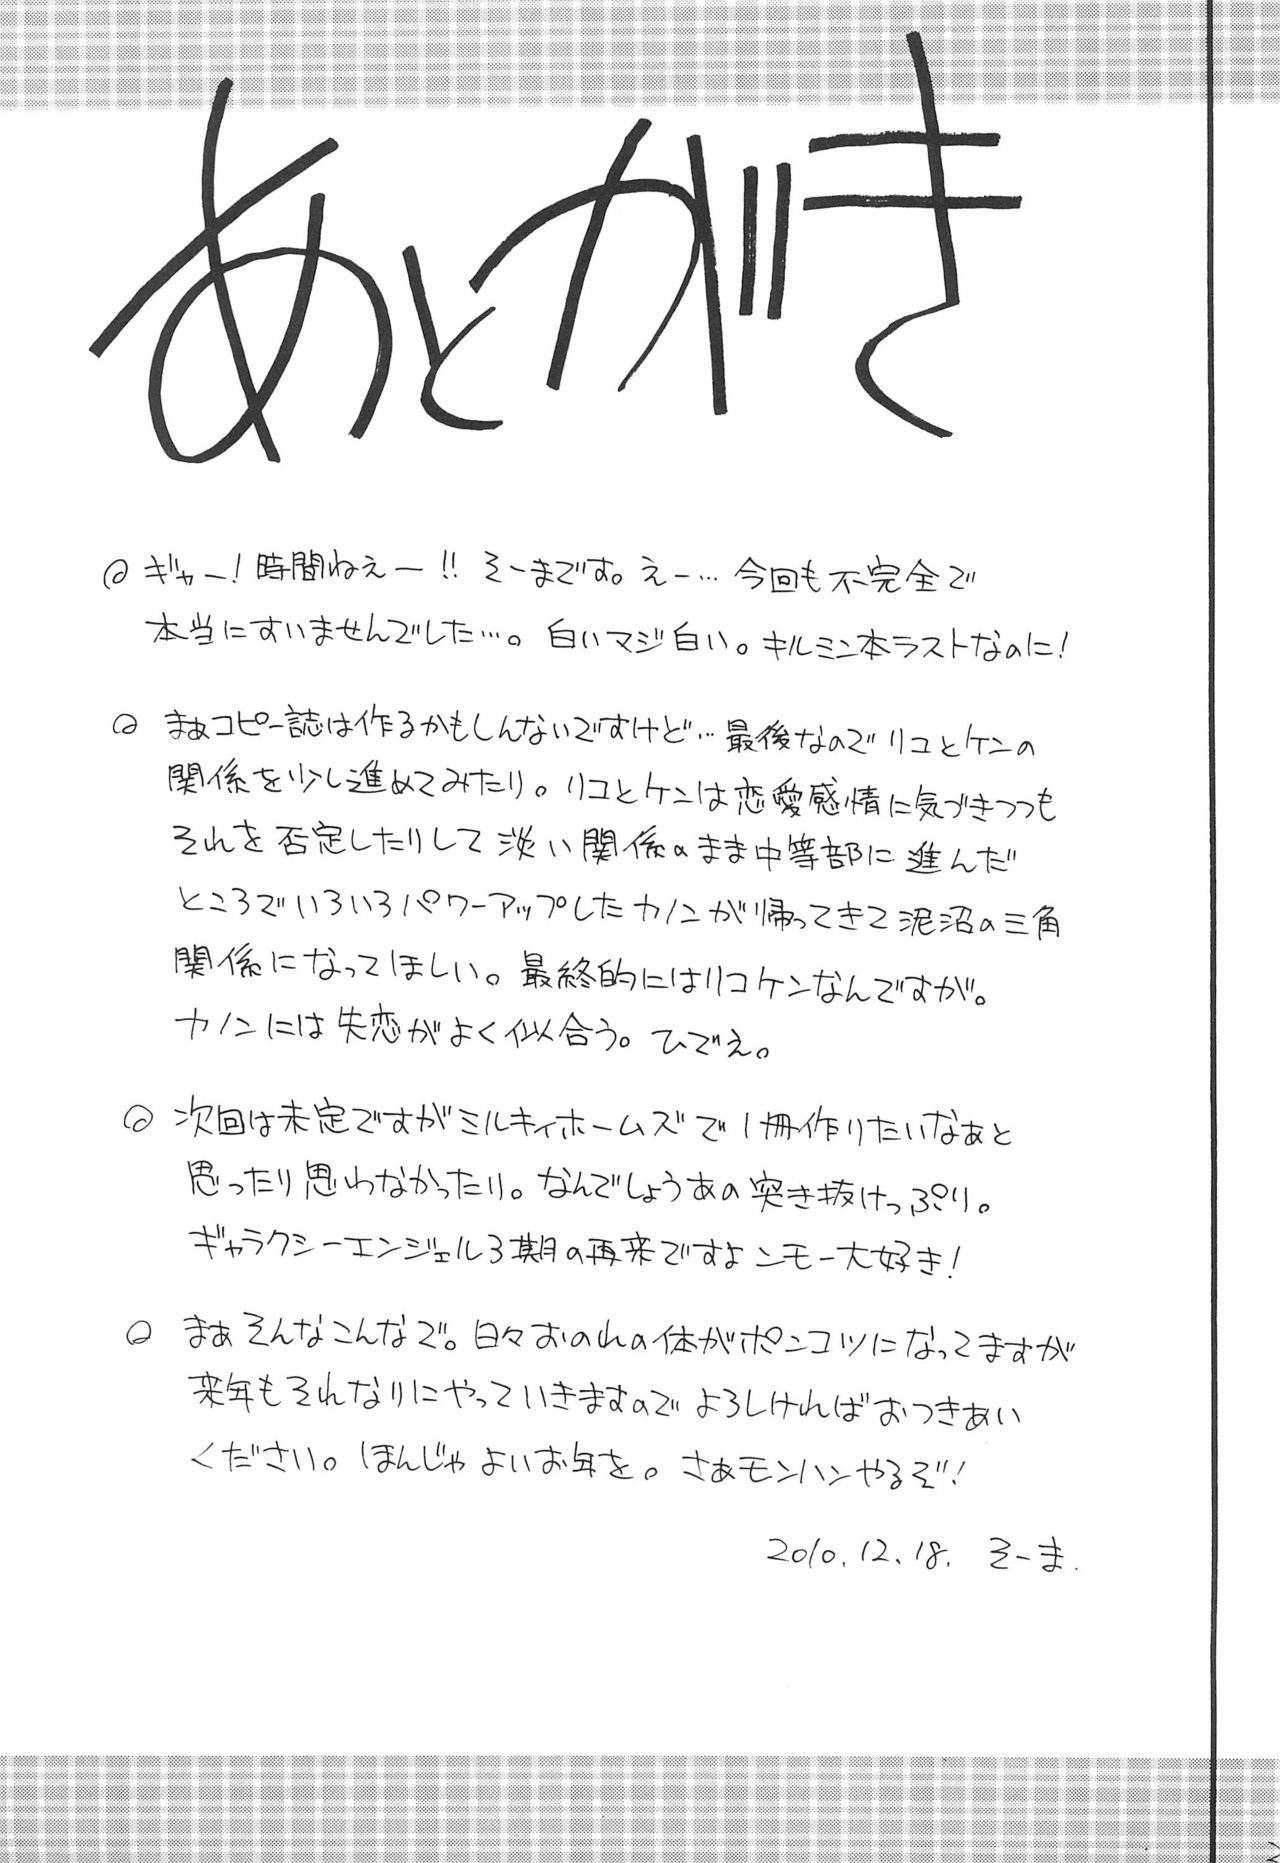 あとがき
ギャー!時間ねぇー!! そーまです。えー…今回も不完全で
本当にすいませんでした…。白いマジ白い。キルミン本ラストなのに!
まぁコピー誌は作るかもしんないですけど…最後なのでリコとケンの
関係を少し進めてみたり。リコとケンは恋愛感情に気づきつつも
それを否定したりして淡い関係のまま中等部に進んだ
ところでいろいろパワーアップしたカノンが帰ってきて泥沼の三角
関係になってほしい。最終的にはリコケンなんですが。
カノンには失恋がよく似合う。ひでぇ。
次回は未定ですがミルキィホームズで1冊作りたいなぁと
思ったり思わなかったり。なんでしょうあの突き抜けっぷり。
ギャラクシーエンジェル3期の再来ですよンモー大好き!
まぁそんなこんなで。日々おのれの体がポンコツになってますが
来年もそれなりにやっていきますのでよろしければおつきあい
ください。ほんじゃよいお年を。さぁモンハンやるぞ!
2010.12.18. そーま.